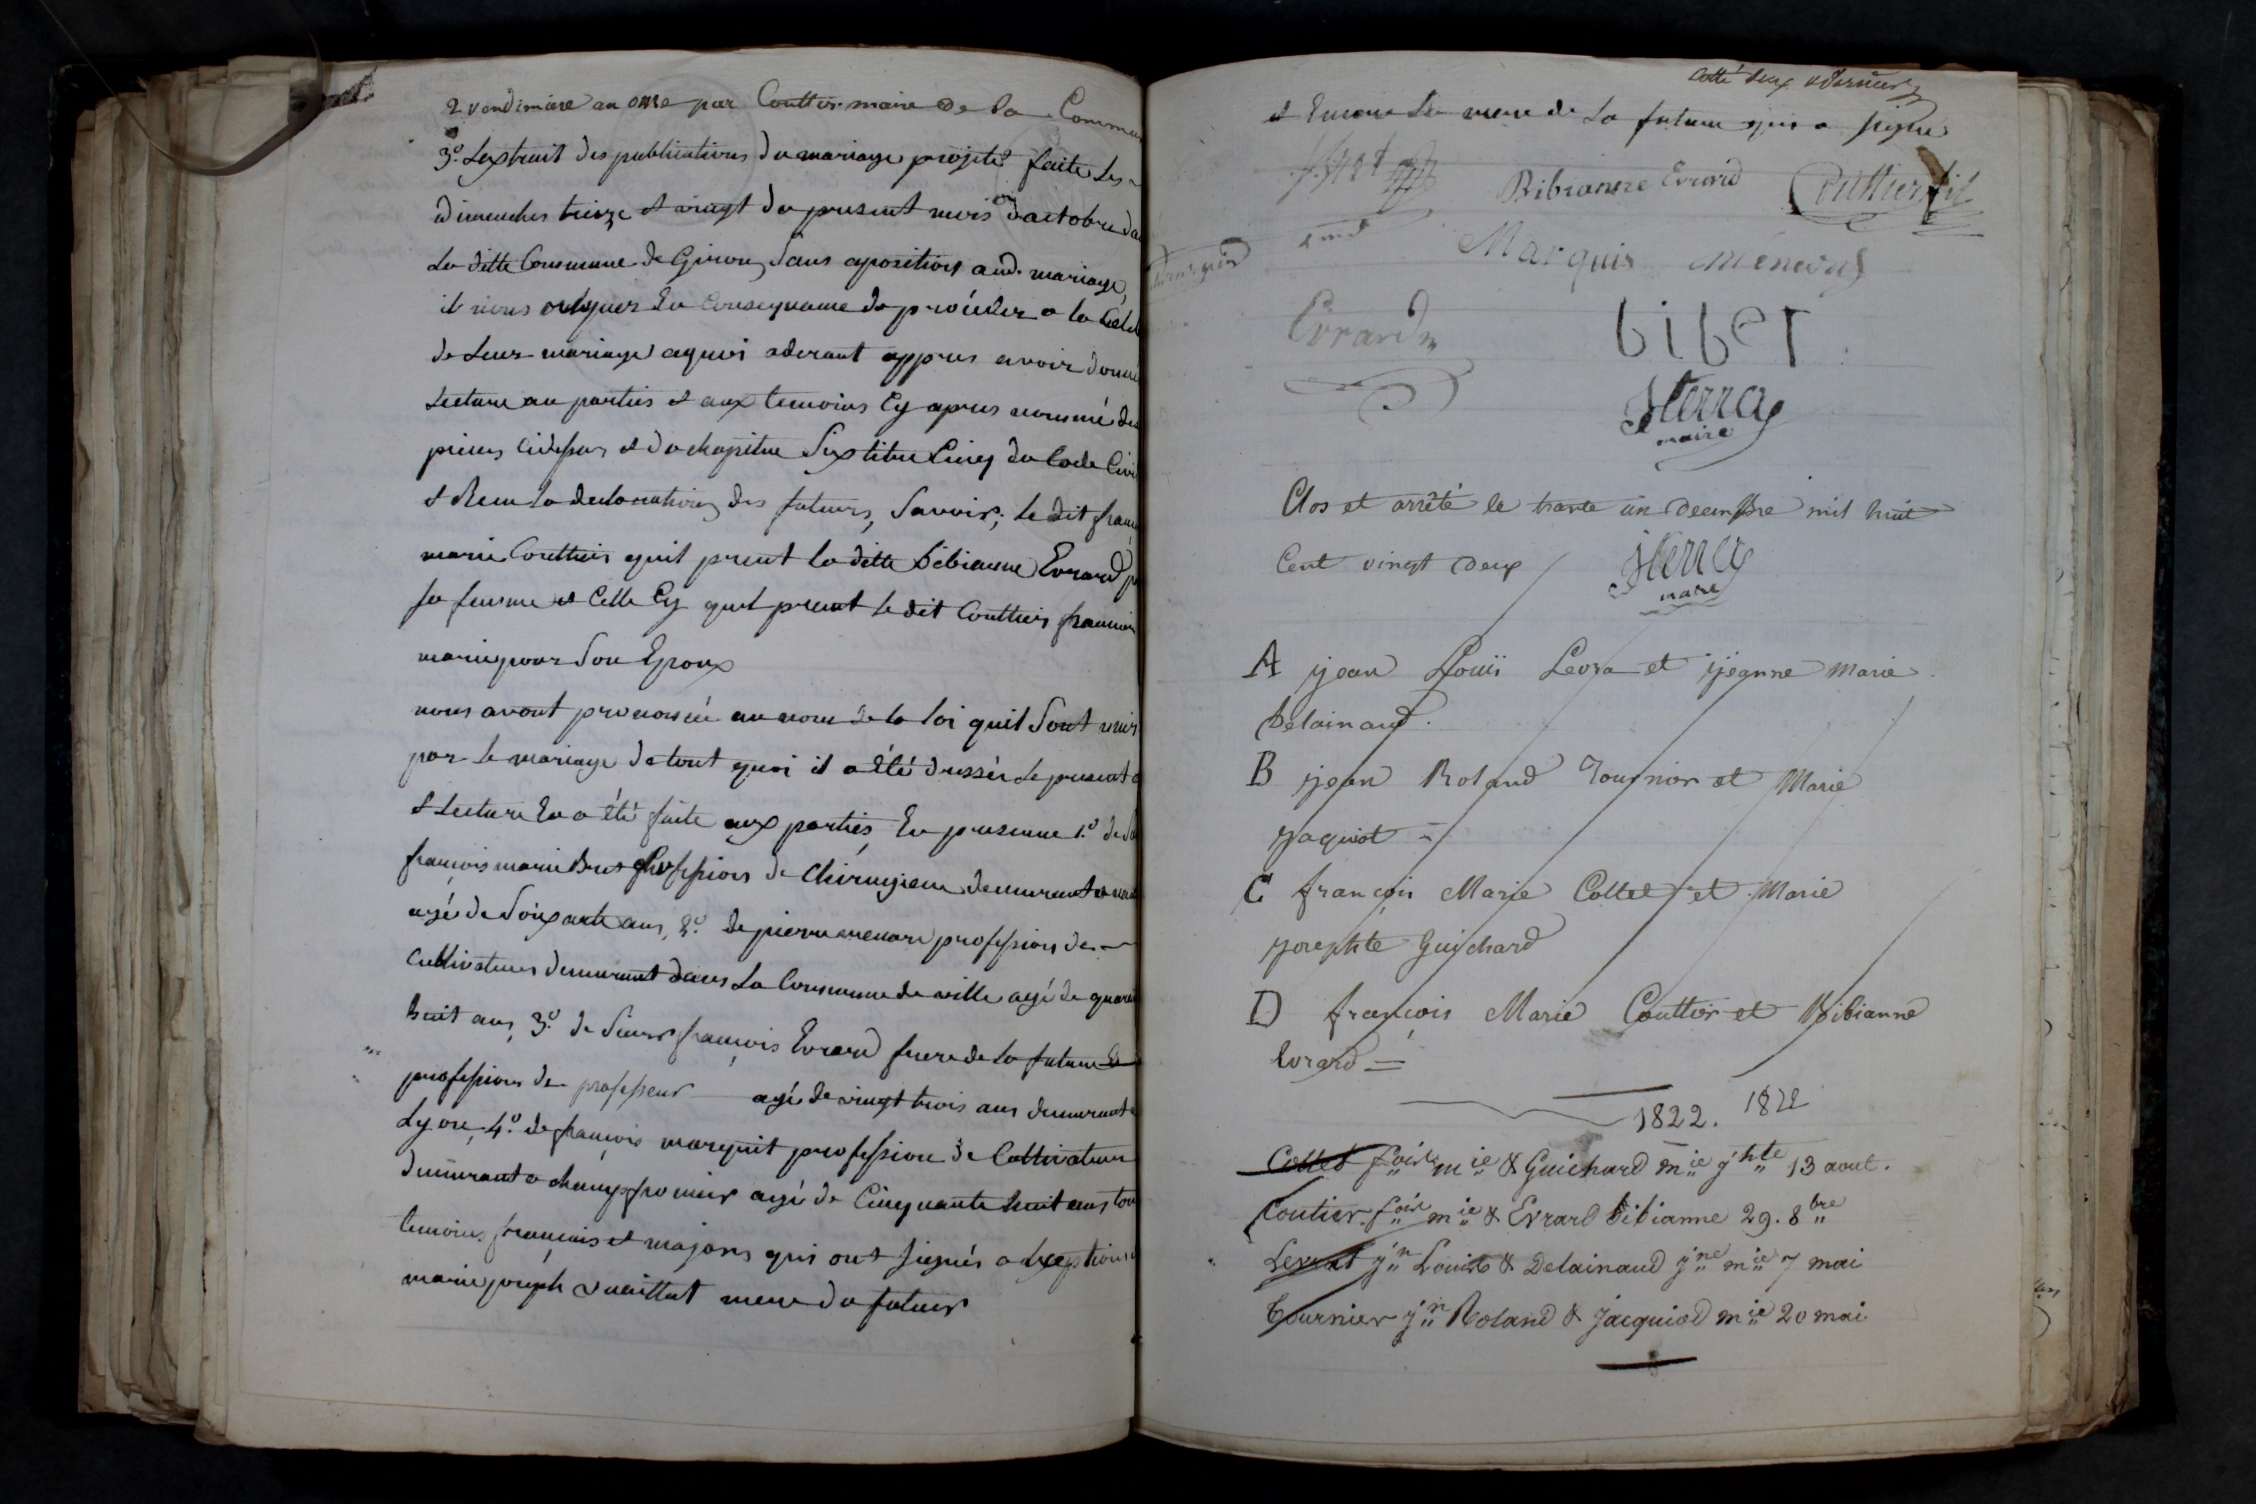 2 vendimiare an onze par Couttier maire de la Commu
3.º Lextrait des publications du mariage projeté faite les
dimenches treize et vingt du present mois d'actobre da
La ditte Commune de Giron, Sans aposition aud. mariage,
de Leur mariage aquoi aderant appres avoir donné
Lecture au parties et aux temoins Cy apres nommé des
pieces cidessus et du chapitre Six titre Cinq du Code Civi
et Recu la declaration des futurs, Savoir; le dit franç
marie Couttier quil prent la ditte Bibianne Evrard p
sa femme et Celle Cy quel prent le dit Couttier francois
marie pour Son Epoux
nous avont prononcée au nom de la loi quil Sont unis
par le mariage de tout quoi il a été dressée le present a
et Lecture En a été faite aux parties, En presence 1.º de S
françois marie profession de Chirurgien demurant a
agé de Soixante ans, 2.º de pierre profession de
Cultivateur demurant dans La Commune de ville agé de quara
huit ans, 3.º de Sieur françois Evrard frere de la future de
profession de professeur agé de vingt trois ans demurant a
Lyon, 4.º de françois marquit profession de Cultivateur
demurant a champfromier agé de Cinquante huit ans tou
temoins français et majors qui ont Signés a Exeption
marie joseph mere du futur
Cotté deux et dernier
et Encore La mere de La future qui a signé
Bibianne Evrard Couttier fils
Marquis
Evrard
bibet
maire
Clos et arrêté le trante un decembre mil huit
Cent vingt deux
maire
A jjean Louïi Levra et jjeanne Marie
Delainaud.
B jjean Roland Tournier et Marie
jjaquiot =
C françoi Marie Collet et Marie
josephte Guichard
D françois Marie Couttier et Bibianne
Evrard =
1822. 1822
Collet foise mie & Guichard mie jhte 13 aout.
Coutier foise mie & Evrard bibianne 29. 8bre
Levrat jn Louis & Delainaud jne mie 7 mai
Tournier jn Roland & Jacquiod mie 20 mai